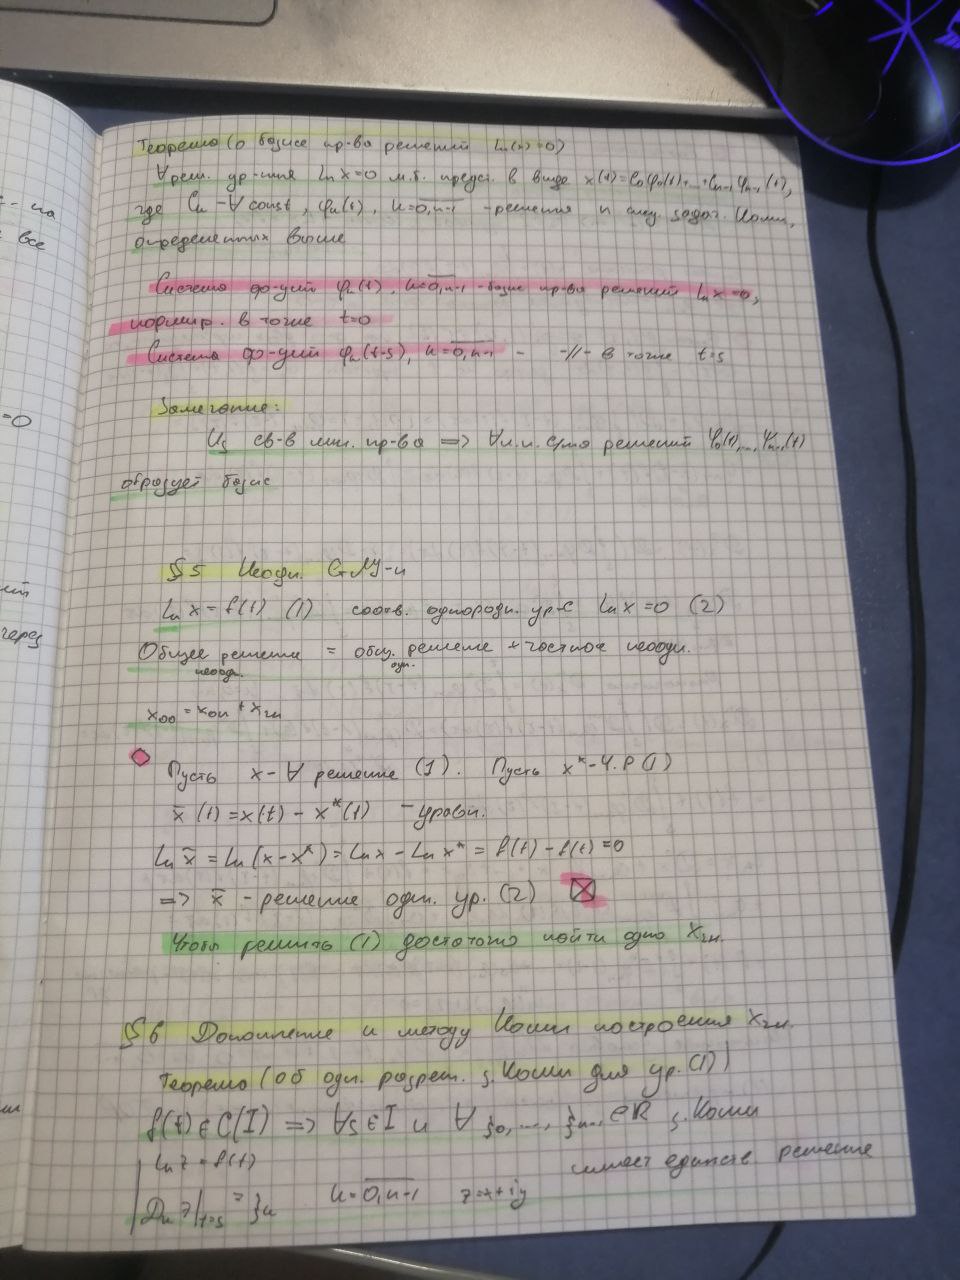 - на
все
=0
через
Теорема (о базисе пр-ва решений Lₙ(x)=0)
∀ реш. ур-ния Lₙx=0 м.б. предст. в виде x(t)=C₀φ₀(t)+...+Cₙ₋₁φₙ₋₁(t),
где Cₖ -∀ const, φₖ(t), k=0,n-1 -решения n след. задач Коши,
определенных выше
Система ф-ций φₖ(t), k=0,n-1 -базис пр-ва решений Lₙx=0,
нормир. в точке t=0
Система ф-ций φₖ(t-s), k=0,n-1 - -//- в точке t=s
Замечание:
Из св-в лин. пр-ва => ∀ л.н. с-ма решений Ψ₀(t),...,Ψₙ₋₁(t)
образует базис
§5 Неодн. СтЛУ-n
Lₙx = f(t) (1) соотв. однородн. ур-е Lₙx=0 (2)
Общее решение = общ. решение + частное неодн.
неодн. одн.
xₒₒ = xₒₙ + xчн
Пусть x-∀ решение (1). Пусть x*-Ч.Р(1)
x̄(t)=x(t) - x*(t) - уравн.
Lₙx̄ = Lₙ(x-x*) = Lₙx - Lₙx* = f(t) - f(t) = 0
=> x̄ - решение одн. ур. (2)
Чтобы решить (1) достаточно найти одно xчн.
§6 Дополнение к методу Коши построения xчн.
Теорема (об одн. разреш. з. Коши для ур. (1))
f(t) ∈ C(I) => ∀s ∈ I и ∀ ξ₀,..., ξₙ₋₁ ∈ R з. Коши
Lₙz = f(t) имеет единств. решение
Dᵏz|t=s = ξₖ k=0,n-1 z=x+iy